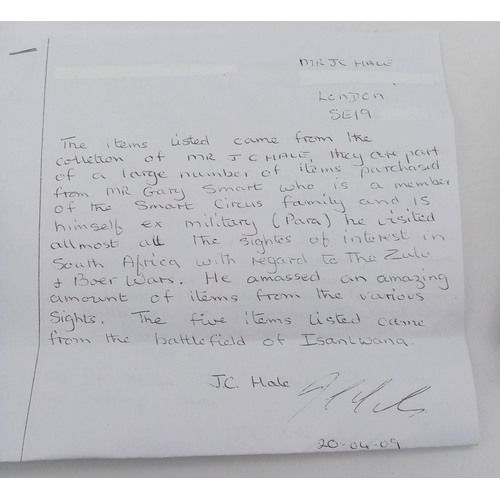 MR JC HALE
LONDON
SE19
The items listed came from the
colletion of MR J C HALE, they are part
of a large number of items purchased
from MR Gary Smart who is a member
of the Smart Circus family and is
himself ex military (Para) he visited
allmost all the sights of interest in
South Africa with regard to The Zulu
& Boer Wars. He amassed an amazing
amount of items from the various
Sights. The five items listed came
from the battlefield of Isanlwana.
J.C. Hale
20-04-09